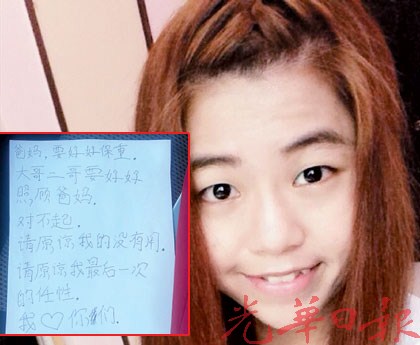 爸妈,要好好保重.
大哥二哥要好好
照顾爸妈.
对不起.
请原谅我的没有用.
请原谅我最后一次
的任性.
我♡你们.
光华日报